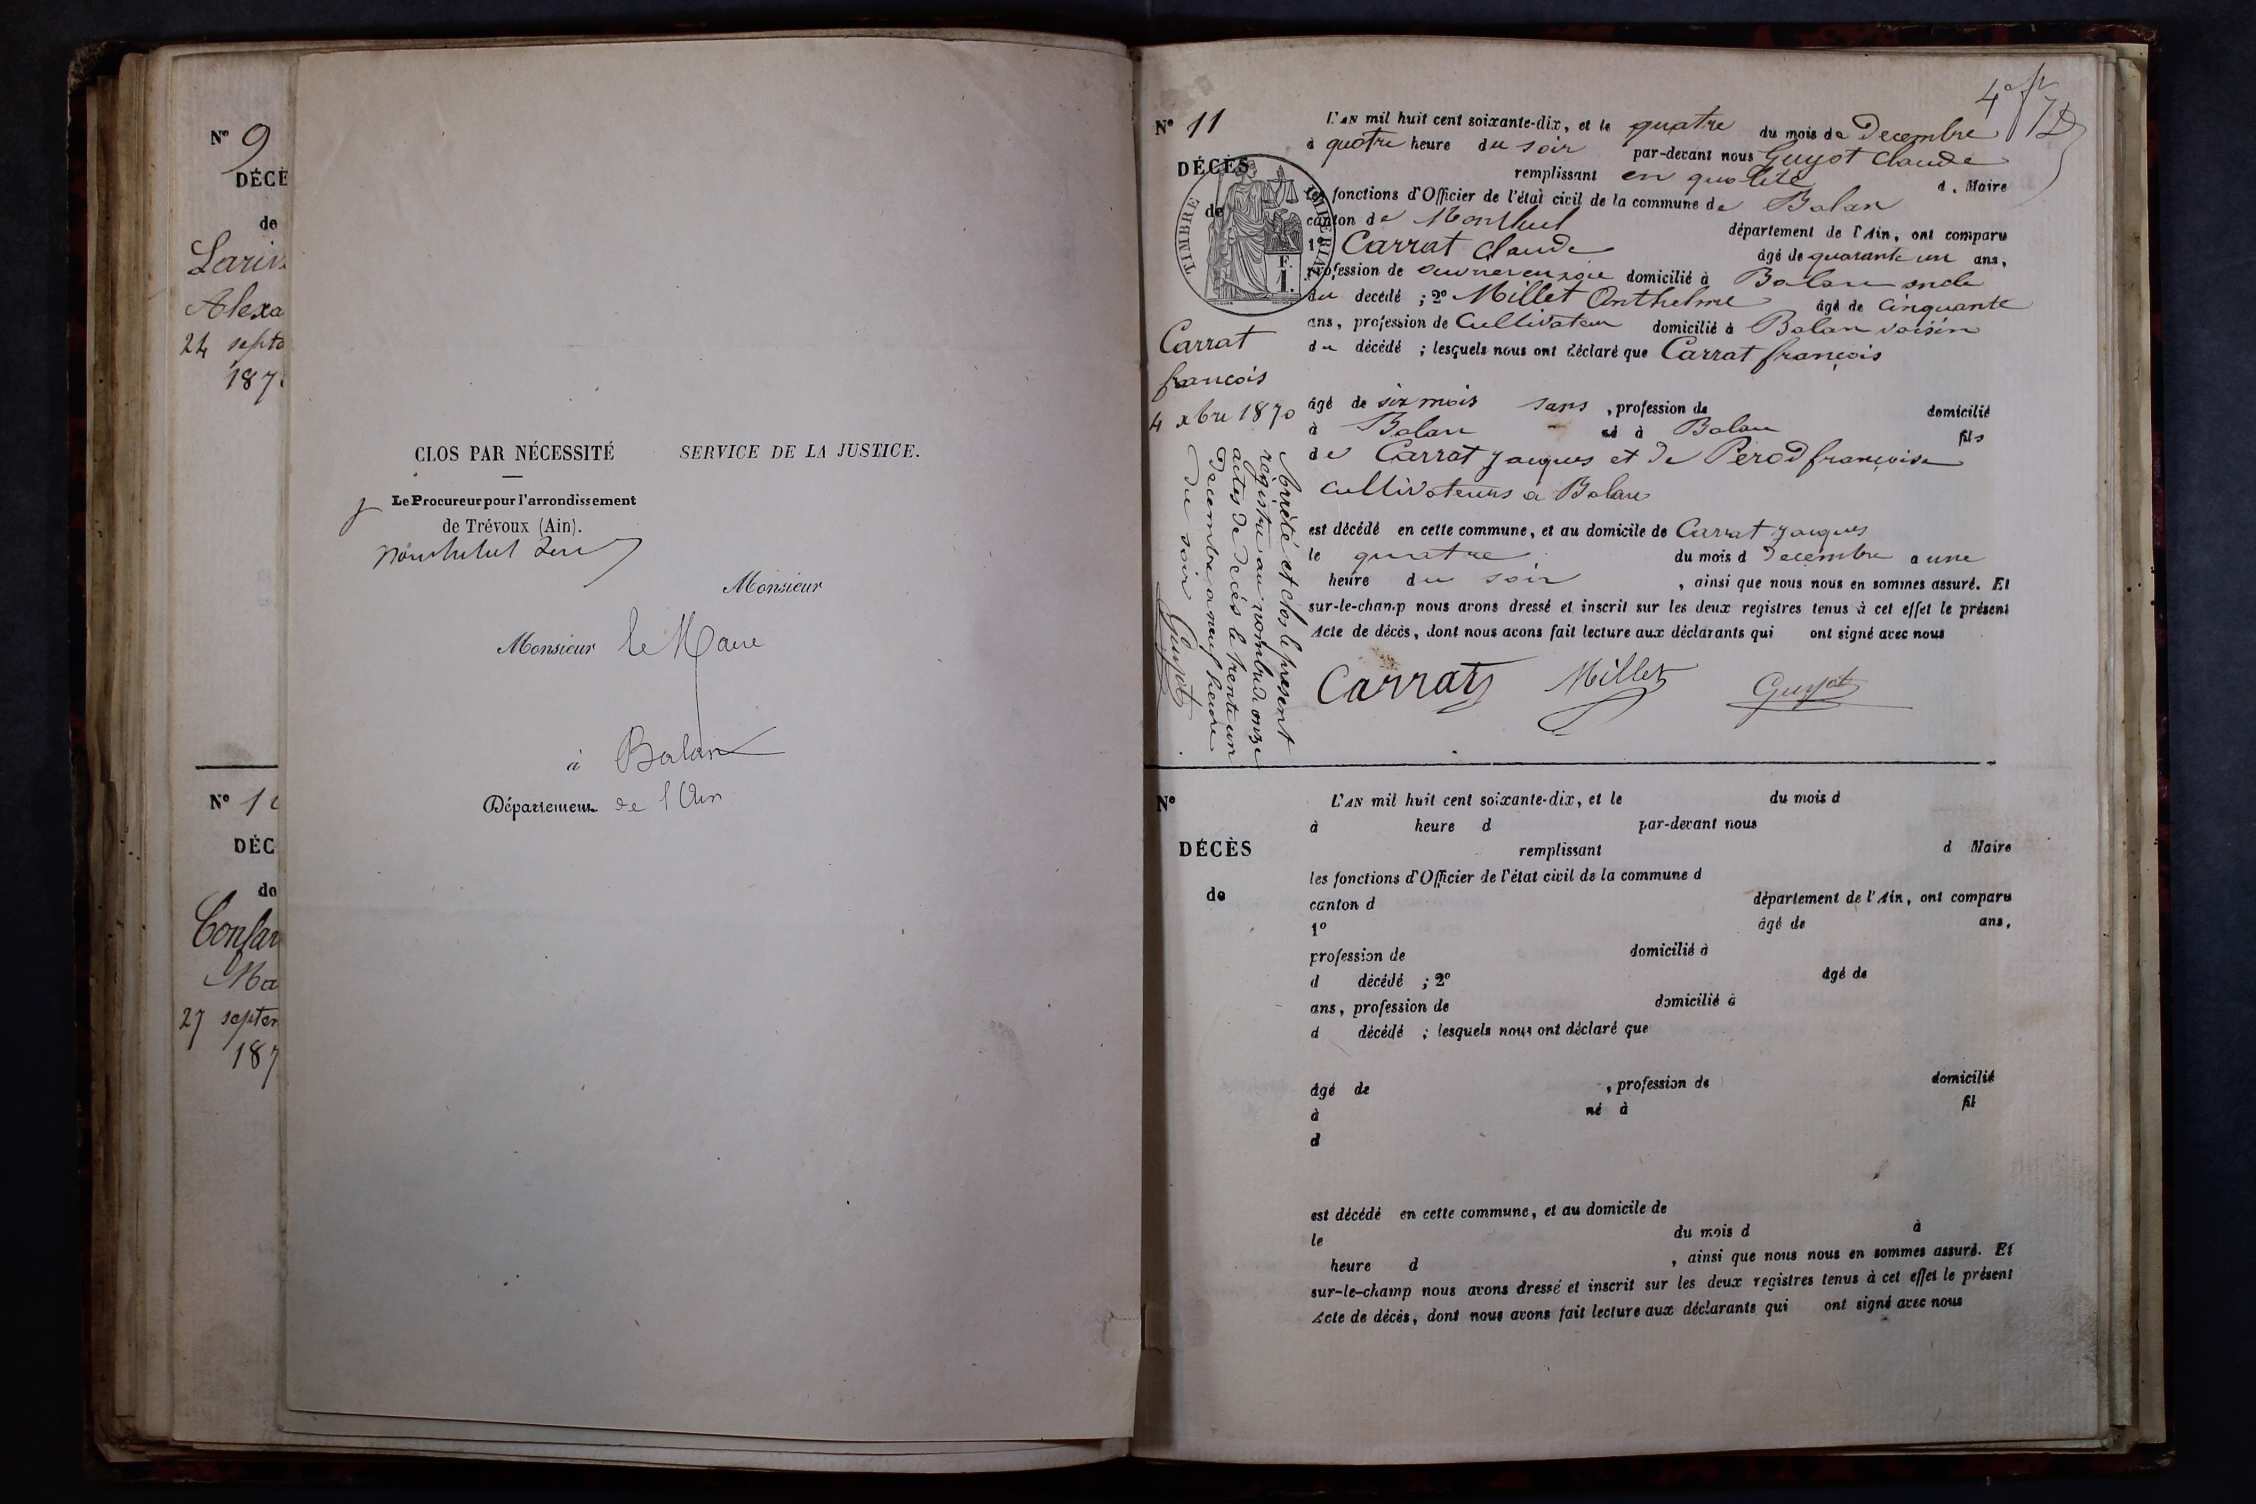 N° 9
DÉCÈ
de
Alexa
24 septe
187
N° 10
DÉC
de
Ma
27 septem
187
CLOS PAR NÉCESSITÉ
SERVICE DE LA JUSTICE.
Le Procureur pour l'arrondissement
de Trévoux (Ain).
Monsieur
Monsieur le Maire
à Balan
Département de l'Ain
4e
N° 11
DÉCÈS
de
TIMBRE IMPERIAL
F.
1.
Carrat
francois
4 xbre 1870
Arrêté et clos le present
registre au nombre de onze
actes de decès le trente un
Decembre a neuf heure
du soir Guyot
L'AN mil huit cent soixante-dix, et le quatre du mois de Decembre
à quatre heure du soir par-devant nous Guyot Claude
remplissant en qualité d. Maire
les fonctions d'Officier de l'état civil de la commune de Balan
canton de Montluel département de l'Ain, ont comparu
1° Carrat Claude âgé de quarante un ans,
profession de ouvrier en soie domicilié à Balan oncle
du décédé ; 2° Millet Anthelme âgé de cinquante
ans, profession de Cultivateur domicilié à Balan voisin
du décédé ; lesquels nous ont déclaré que Carrat françois
âgé de six mois sans , profession de domicilié
à Balan né à Balan fils
de Carrat Jacques et de Perod françoise
cultivateurs a Balan
est décédé en cette commune, et au domicile de Carrat Jacques
le quatre du mois d Decembre a une
heure du soir , ainsi que nous nous en sommes assuré. Et
sur-le-champ nous avons dressé et inscrit sur les deux registres tenus à cet effet le présent
Acte de décès, dont nous avons fait lecture aux déclarants qui ont signé avec nous
Carrat Millet Guyot
N°
DÉCÈS
de
L'AN mil huit cent soixante-dix, et le du mois d
à heure d par-devant nous
remplissant d Maire
les fonctions d'Officier de l'état civil de la commune d
canton d département de l'Ain, ont comparu
1° âgé de ans,
profession de domicilié à
d décédé ; 2° âgé de
ans, profession de domicilié à
d décédé ; lesquels nous ont déclaré que
âgé de , profession de domicilié
à né à fil
d
est décédé en cette commune, et au domicile de
le du mois d à
heure d , ainsi que nous nous en sommes assuré. Et
sur-le-champ nous avons dressé et inscrit sur les deux registres tenus à cet effet le présent
Acte de décès, dont nous avons fait lecture aux déclarants qui ont signé avec nous